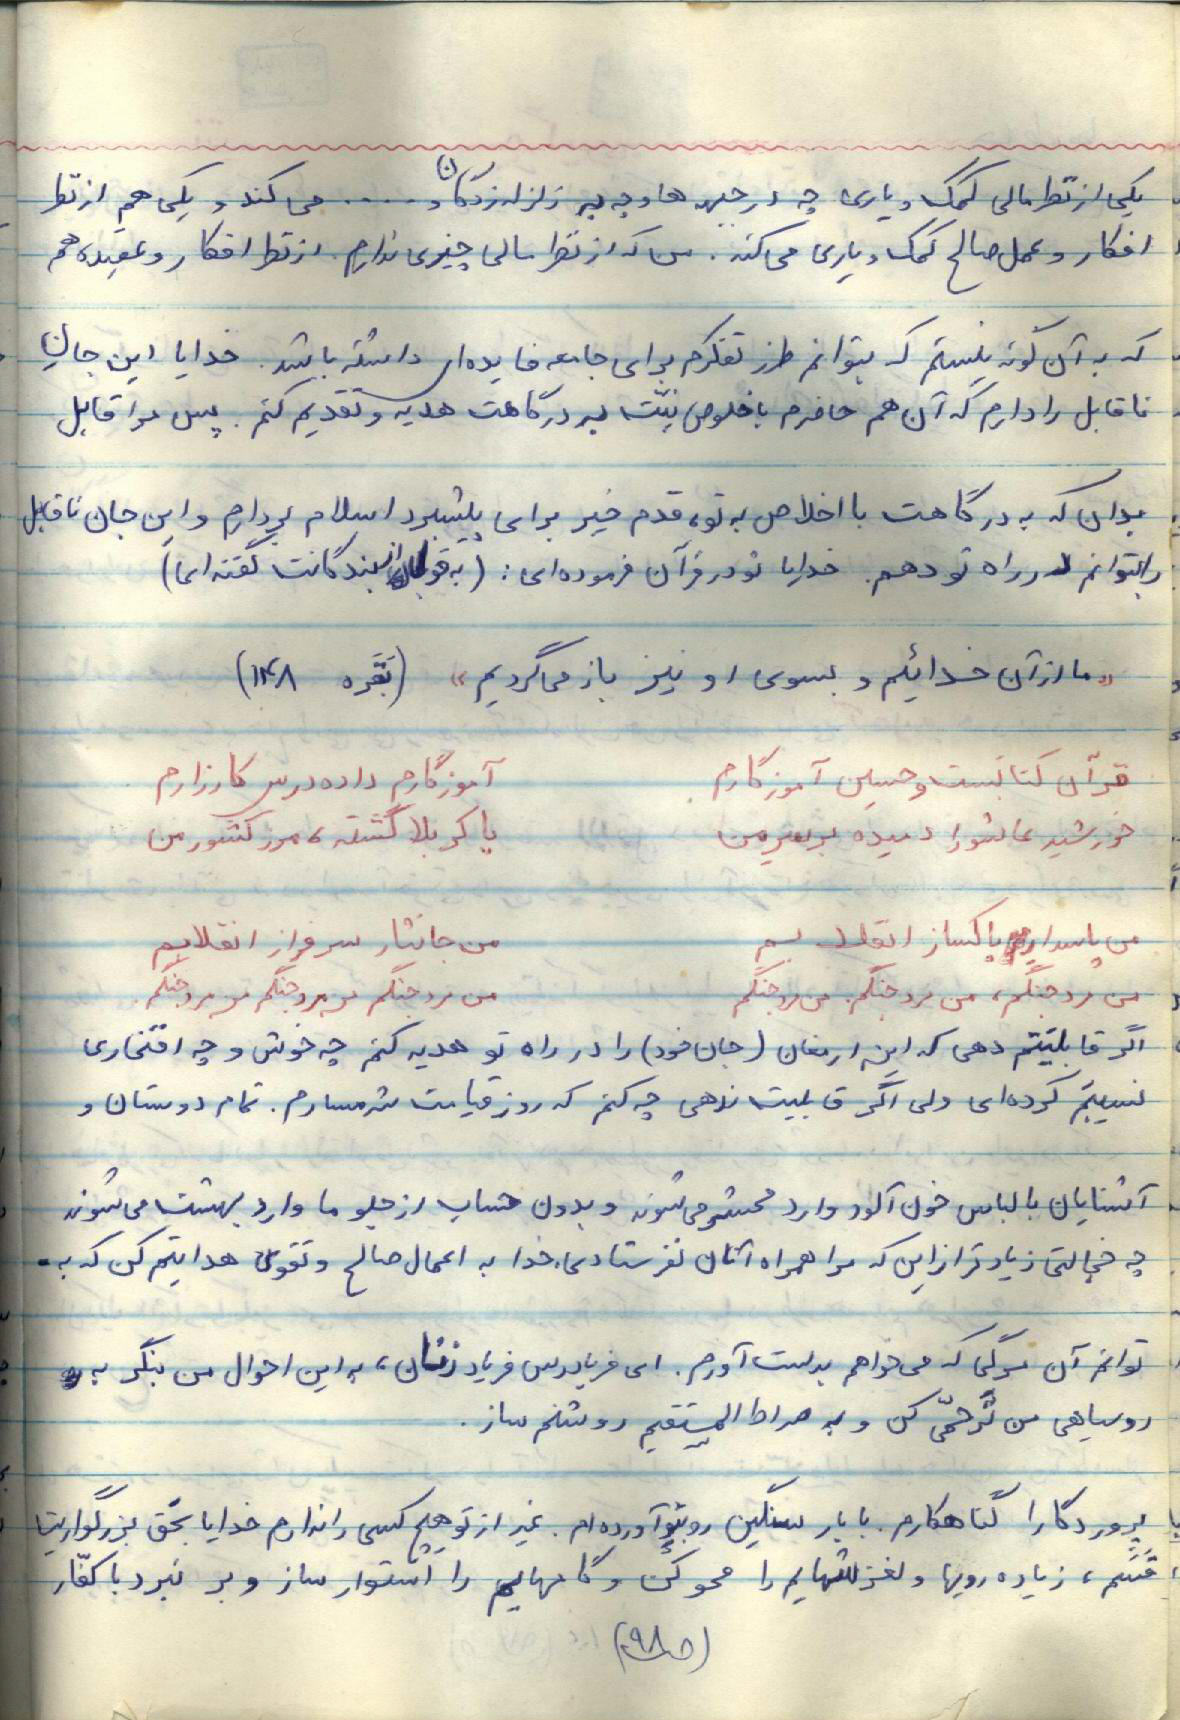 یکی از نظر مالی کمک و یاری چه در جبهه ها و چه بر زلزله زدگان و ..... می کند و یکی هم از نظر
افکار و عمل صالح کمک و یاری می کند . من که از نظر مالی چیزی ندارم . از نظر افکار و عقیده هم
که به آن گونه نیستم که بتوانم طرز تفکرم برای جامعه فایده ای داشته باشد . خدایا این جان
ناقابل را دارم که آن هم حاضرم با خلوص نیّت به درگاهت هدیه و تقدیم کنم . پس مرا قابل
بدان که به درگاهت با اخلاص به تو، قدم خیر برای پیشبرد اسلام بردارم و این جان ناقابل
را بتوانم در راه تو دهم . خدایا تو در قرآن فرموده ای : (به قول از بندگانت گفته ای)
«ما از آن خدائیم و بسوی او نیز باز می گردیم» (بَقَره ۱۴۸)
قرآن کتابست و حسین آموزگارم آموزگارم داده درس کارزارم
خورشید عاشورا دمیده بر من با کربلا گشته ، مرز کشور من
من پاسدار پاکساز انقلابم من جانثار سرفراز انقلابم
من مرد جنگم ، من مرد جنگم . من مرد جنگم من مرد جنگم من مرد جنگم من مرد جنگم .
اگر قابلیّتم دهی که این ارمغان (جان خود) را در راه تو هدیه کنم چه خوش و چه افتخاری
نسیبم کرده ای ولی اگر قابلیت ندهی چه کنم که روز قیامت شرمسارم . تمام دوستان و
آشنایان با لباس خون آلود وارد محشر می شوند و بدون حساب از جلو ما وارد بهشت می شوند
چه خجالتی زیادتر از این که مرا همراه آنان نفرستادی، خدا به اعمال صالح و تقوی هدایتم کن که به -
توانم آن مرگی که می خواهم بدست آورم . ای فریادرس فریاد زنان ، به این احوال من بنگر به
روسیاهی من ترحّمی کن و به صراط المستقیم روشنم ساز .
پروردگارا گناهکارم . با بار سنگین رو بتو آورده ام . غیر از تو هیچ کسی را ندارم خدایا بحق بزرگواریت
قَسَم ، زیاده رویها و لغزشهایم را محو کن و گامهایم را استوار ساز و بر نبرد با کفّار
(ص ۹۸)